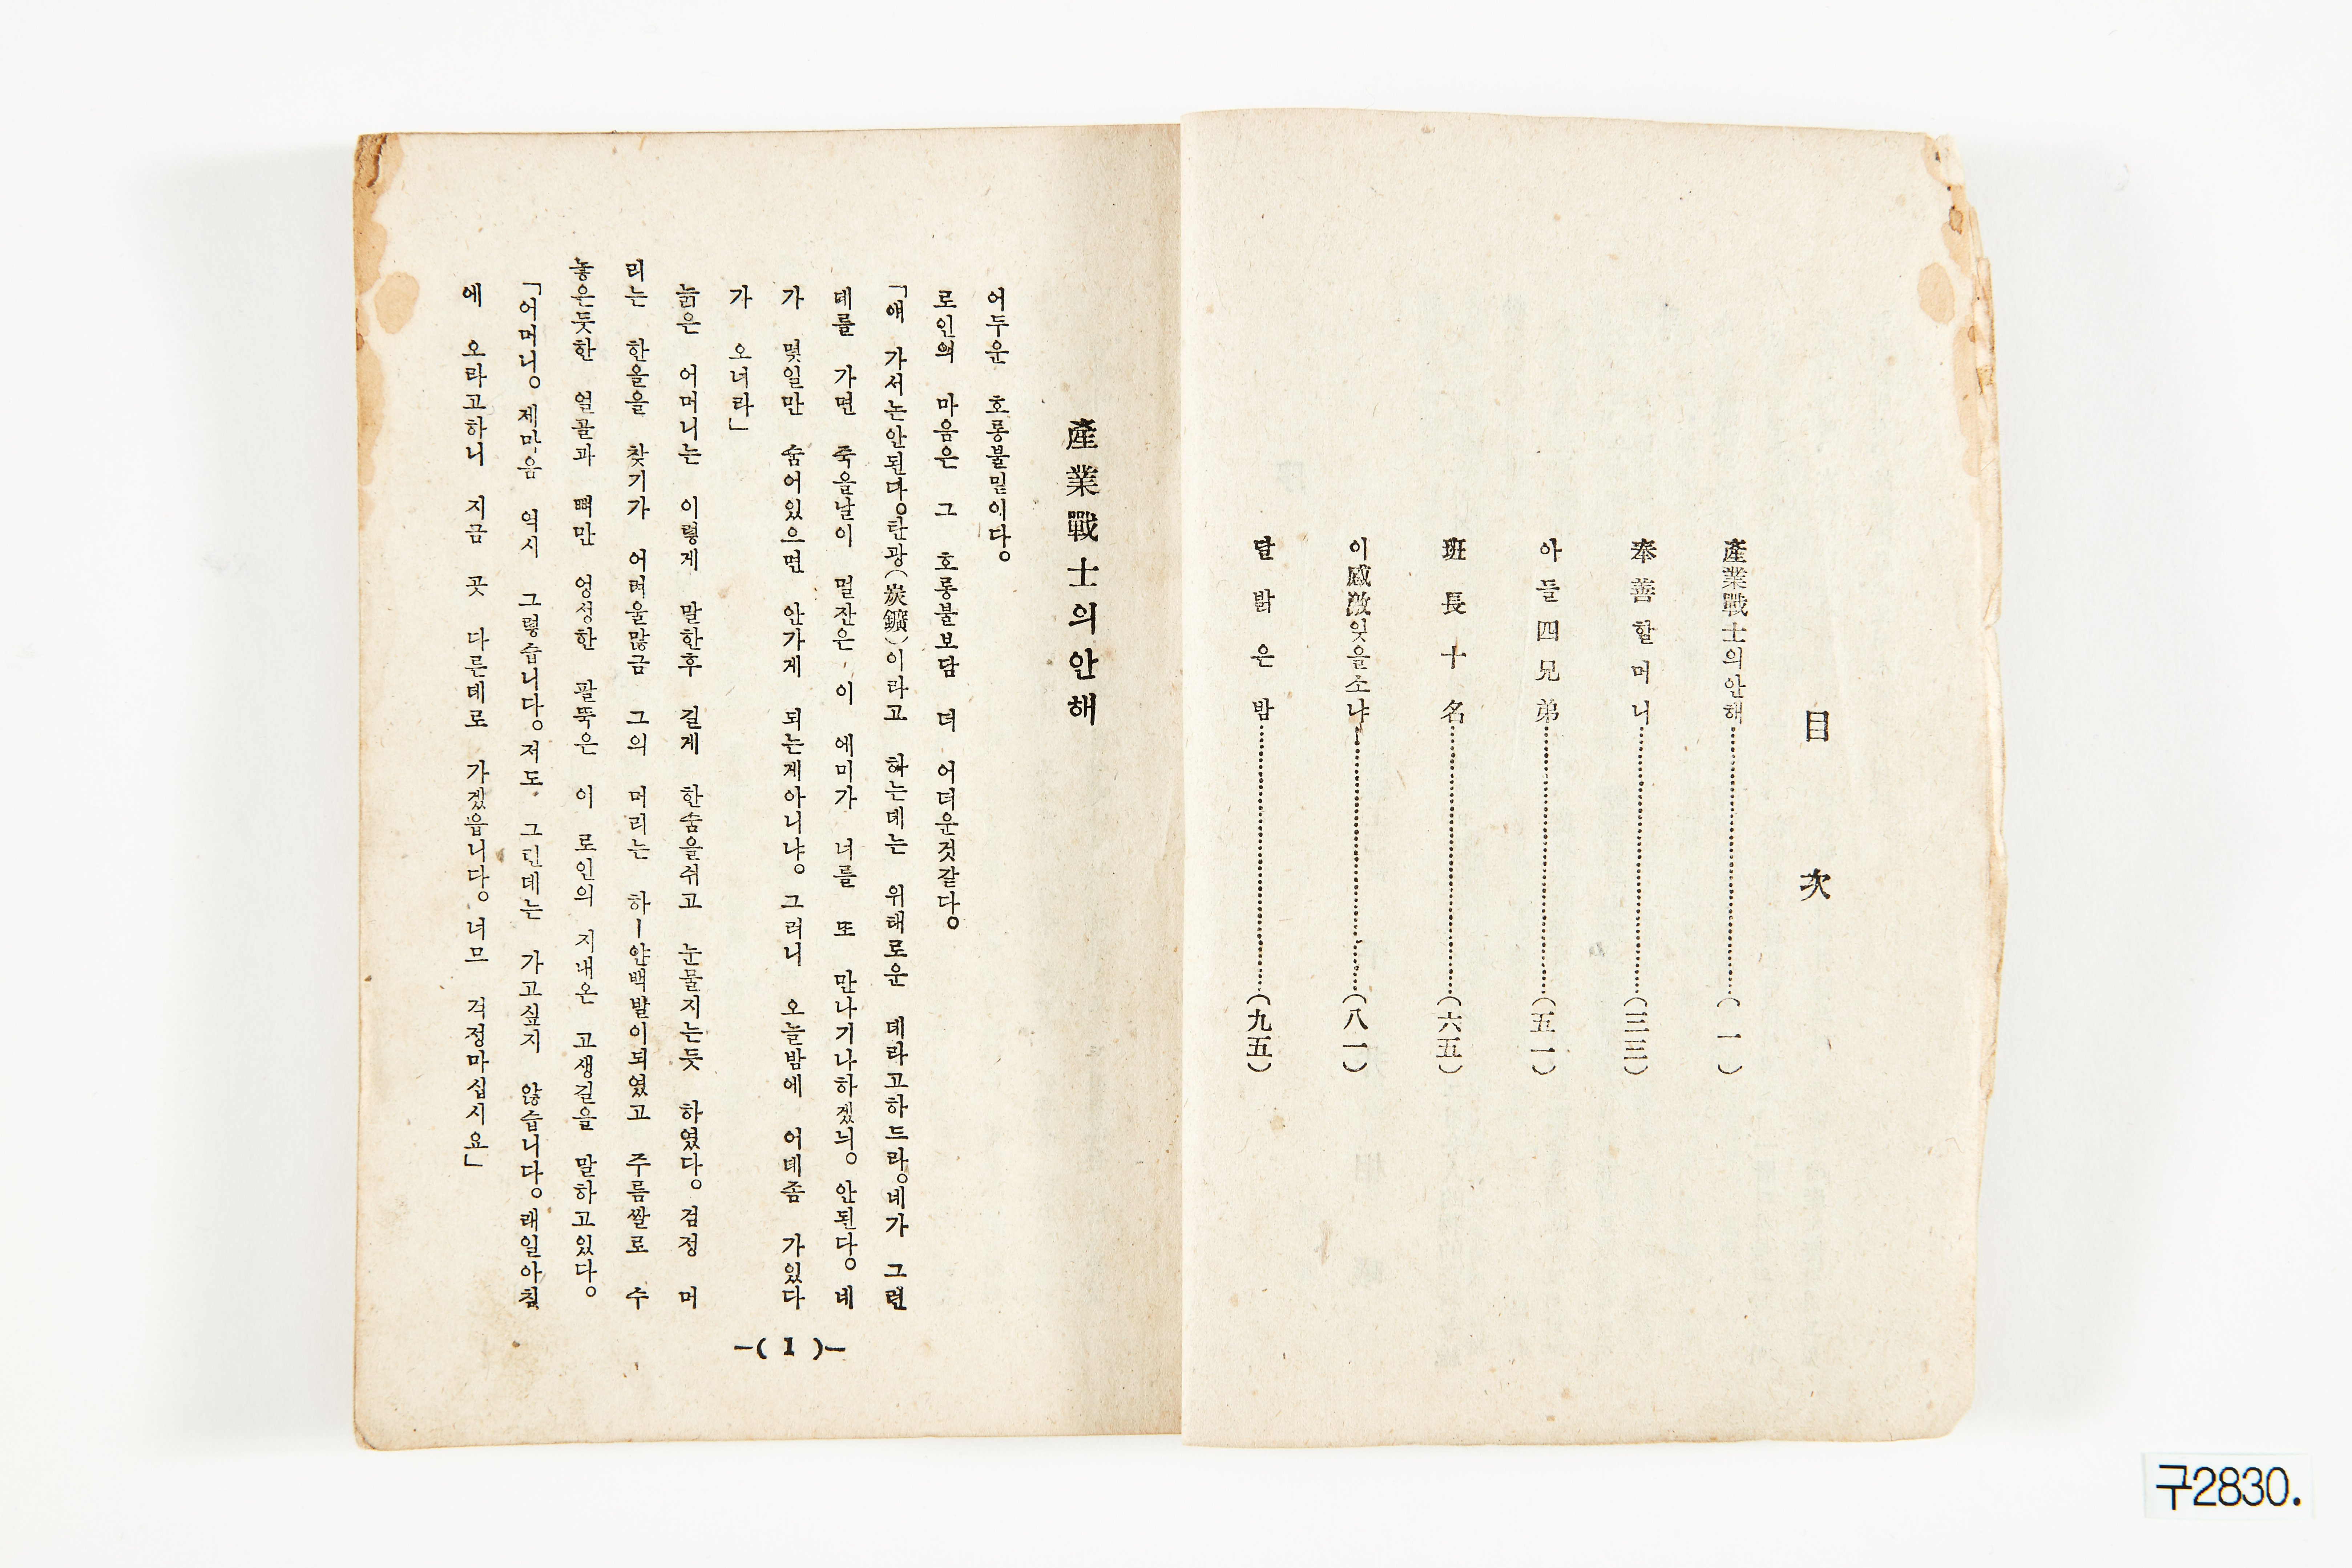 目次
產業戰士의안해……………(一)
奉善할머니……………(三三)
아들四兄弟……………(五一)
班長十名……………(六五)
이感激잊을소냐……………(八一)
달밝은밤……………(九五)
產業戰士의안해
어두운 호롱불밑이다。
로인의 마음은 그 호롱불보담 더 어더운것같다。
「얘 가서는안된다。탄광(炭鑛)이라고 하는데는 위태로운 데라고하드라。네가 그런
데를 가면 죽을날이 멀잔은 이 에미가 너를 또 만나기나하겠늬。안된다。네
가 몇일만 숨어있으면 안가게 되는게아니냐。그러니 오늘밤에 어데좀 가있다
가 오너라」
늙은 어머니는 이렇게 말한후 길게 한숨을쉬고 눈물지는듯 하였다。검정 머
리는 한올을 찾기가 어려울많금 그의 머리는 하ー얀백발이되였고 주름쌀로 수
놓은듯한 얼골과 뼈만 엉성한 팔뚝은 이 로인의 지내온 고생길을 말하고있다。
「어머니。제마음 역시 그렇습니다。저도 그런데는 가고싶지 않습니다。래일아침
에 오라고하니 지금 곳 다른데로 가겠읍니다。너므 걱정마십시요」
-( 1 )-
구2830.